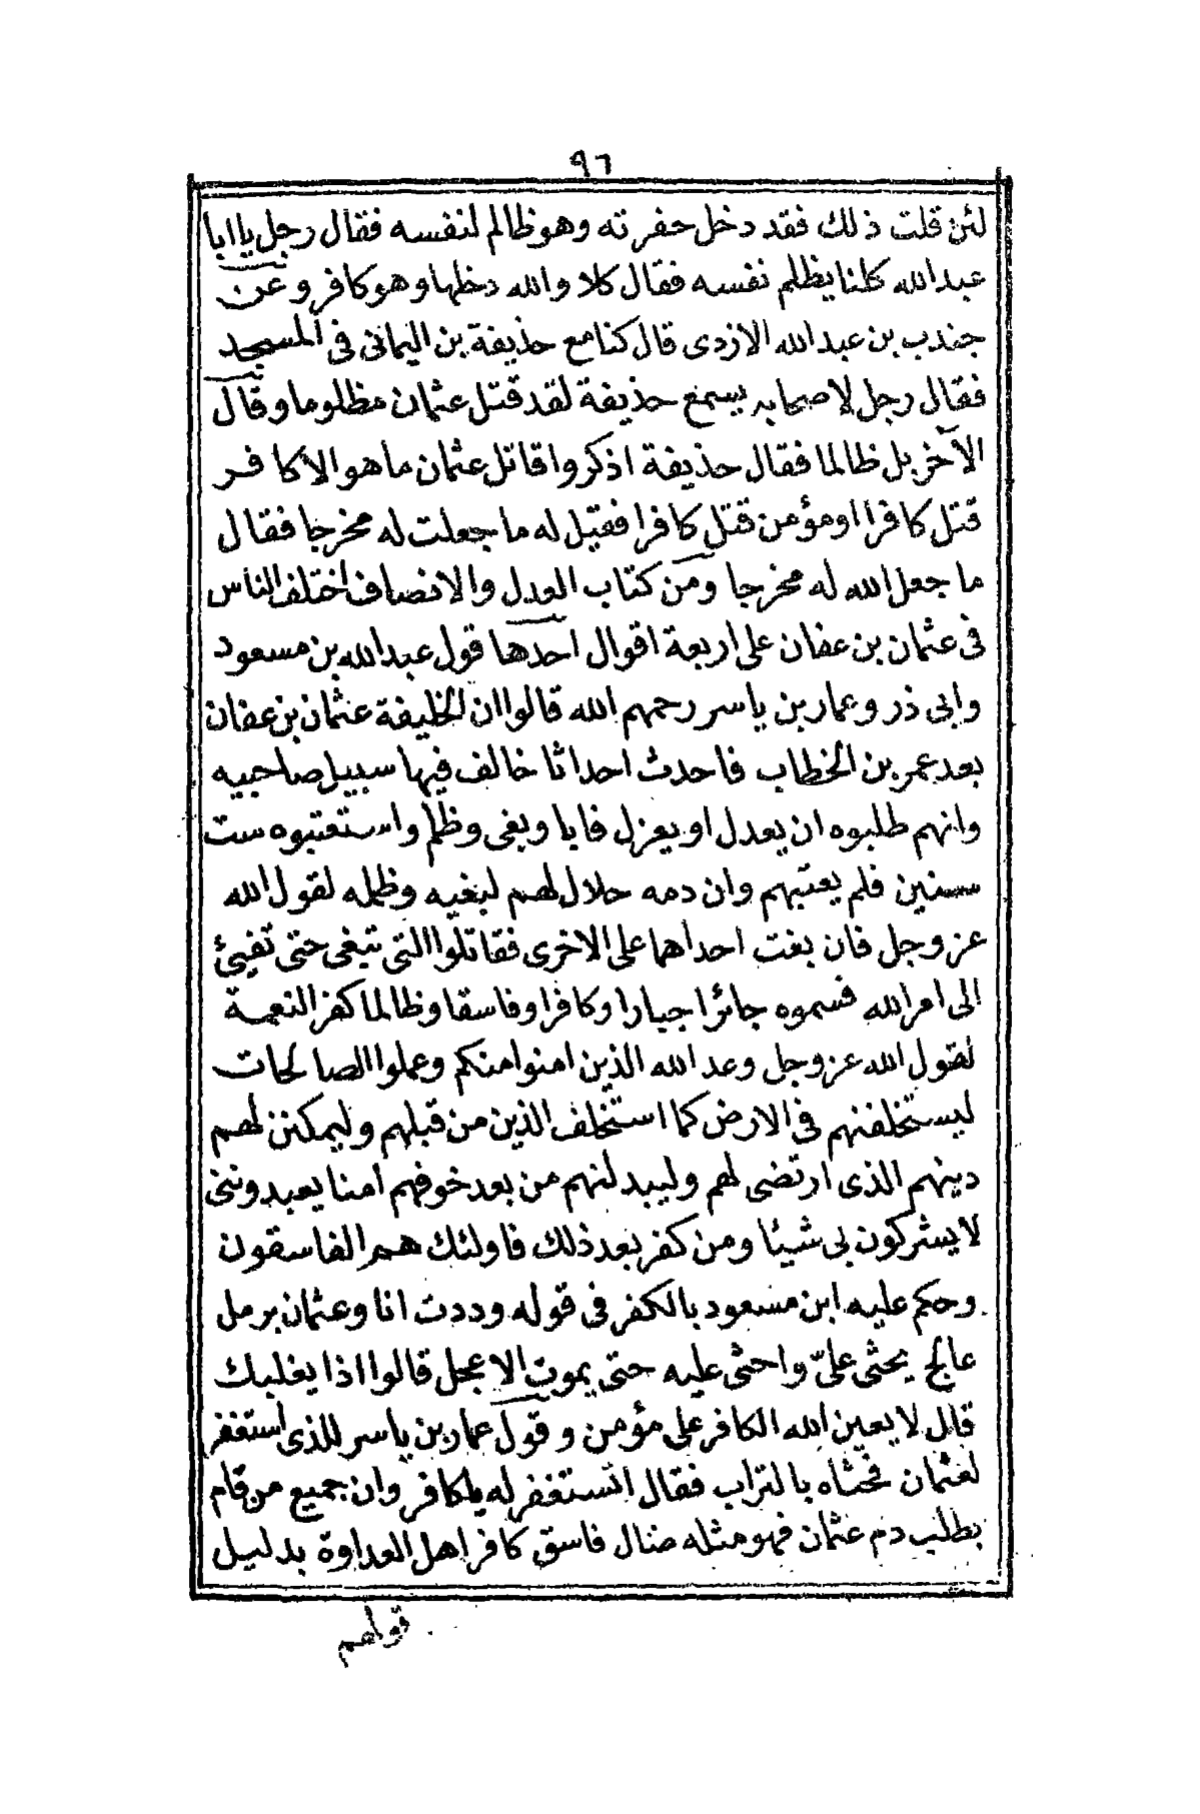 ٩٦
لئن قلت ذلك فقد دخل حفرته وهو ظالم لنفسه فقال رجل يا ابا
عبد الله كلنا يظلم نفسه فقال كلا والله دخلها وهو كافر وعن
جندب بن عبد الله الازدى قال كنا مع حذيفة بن اليمانى فى المسجد
فقال رجل لاصحابه يسمع حذيفة لقد قتل عثمان مظلوما وقال
الآخر بل ظالما فقال حذيفة اذكروا قاتل عثمان ما هو الا كافر
قتل كافرا او مؤمن قتل كافرا فقيل له ما جعلت له مخرجا فقال
ما جعل الله له مخرجا ومن كتاب العدل والانصاف اختلف الناس
فى عثمان بن عفان على اربعة اقوال احدها قول عبد الله بن مسعود
وابى ذر وعمار بن ياسر رحمهم الله قالوا ان الخليفة عثمان بن عفان
بعد عمر بن الخطاب فاحدث احداثا خالف فيها سبيل صاحبيه
وانهم طلبوه ان يعدل او يعزل فابا وبغى وظلم واستعتبوه ست
سنين فلم يعتبهم وان دمه حلال لهم لبغيه وظلمه لقول الله
عز وجل فان بغت احداهما على الاخرى فقاتلوا التى تبغى حتى تفيئ
الى امر الله فسموه جائرا جبارا وكافرا وفاسقا وظالما كفر النعمة
لقول الله عز وجل وعد الله الذين امنوا منكم وعملوا الصالحات
ليستخلفنهم فى الارض كما استخلف الذين من قبلهم وليمكنن لهم
دينهم الذى ارتضى لهم وليبدلنهم من بعد خوفهم أمنا يعبدوننى
لا يشركون بى شيئا ومن كفر بعد ذلك فاولئك هم الفاسقون
وحكم عليه ابن مسعود بالكفر فى قوله وددت انا وعثمان برمل
عالج يحثى علىّ واحثى عليه حتى يموت الاعجل قالوا اذا يغلبك
قال لا يعين الله الكافر على مؤمن وقول عمار بن ياسر للذى استغفر
لعثمان فحثاه بالتراب فقال اتستغفر له يا كافر وان جميع من قام
بطلب دم عثمان فهو مثله ضال فاسق كافر اهل العداوة بدليل
قولهم